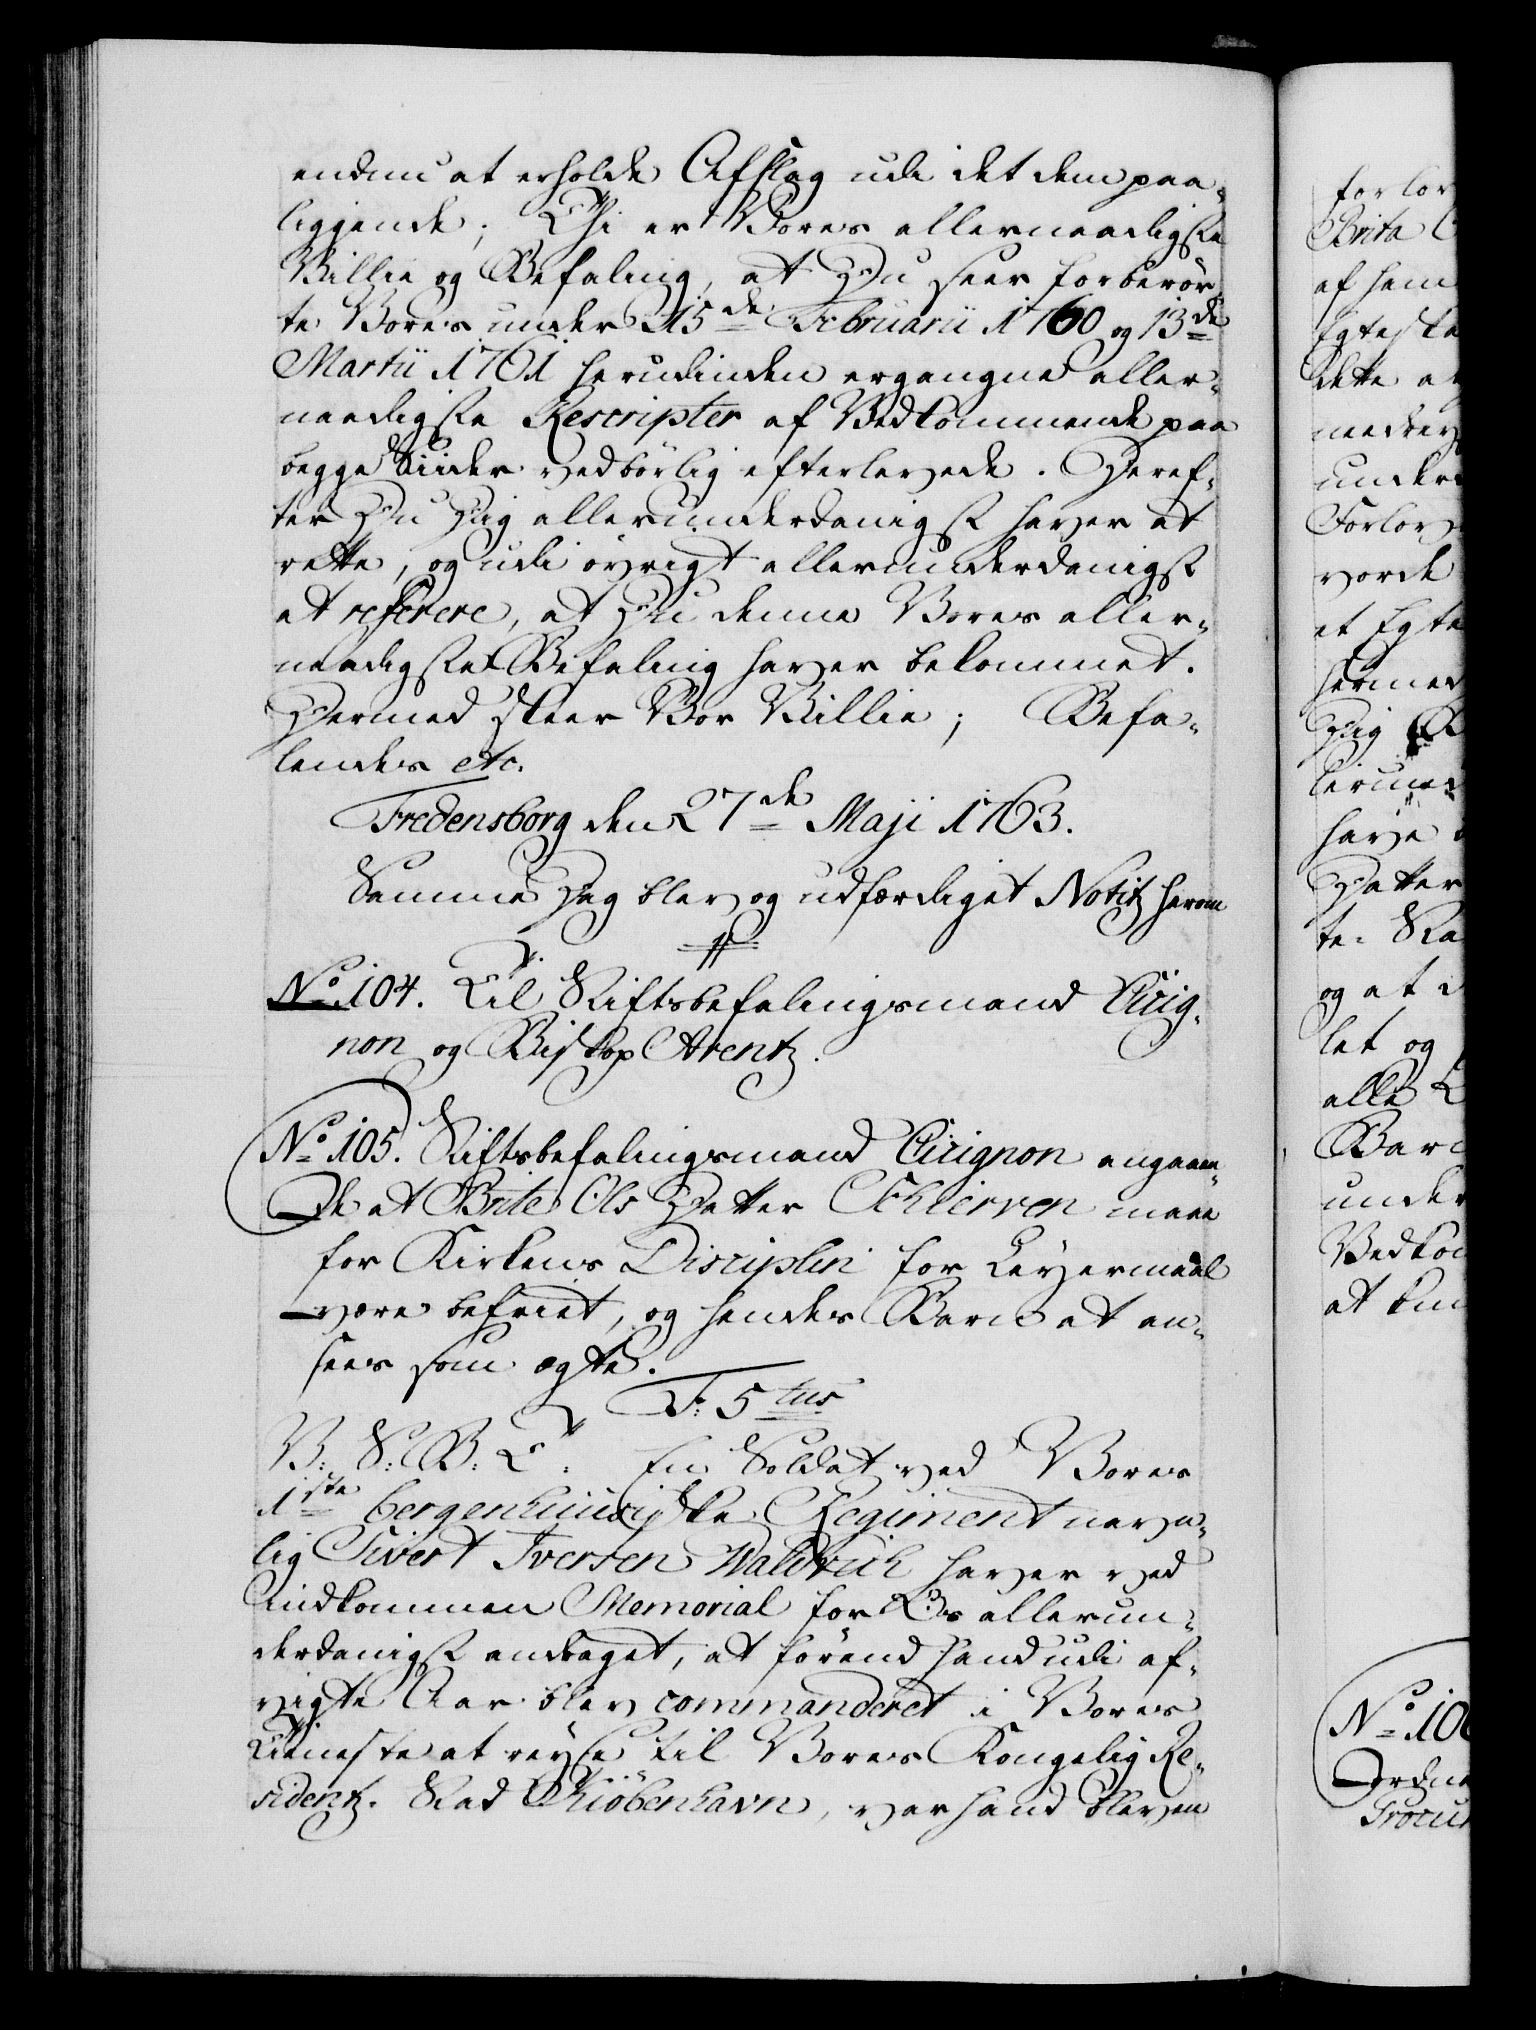 endnu at erholde Afslag udi det dem paa-
liggende; Thi er Vores allernaadigste
Villie og Befaling, at Du seer forberør-
te Vores under 15de Februarii 1760 og 13de
Martii 1761 herudinden ergangne aller-
naadigste Rescripter af Vedkommende paa
begge Siider vedbørlig efterlevede. Deref-
ter Du Dig allerunderdanigst haver at
rette, og udi øvrigt allerunderdanigst
at referere, at Du denne Vores aller-
naadigste Befaling haver bekommet.
Dermed skeer Vor Villie; Befa-
lendes etc.
Fredensborg den 27de Maji 1763.
Samme Dag blev og udfærdiget Notitz herom
No 104. Til Stiftsbefalingsmand Cicig-
non og Biskop Arentz.
No 105. Stiftsbefalingsmand Cicignon angaaen-
de at Brite Ols Datter Schierven maae
for Kirkens Disciplin for Leyermaal
være befriet, og hendes Barn at an-
sees som ægte.
F: 5tus
V: S: B: T: En Soldat ved Vores
1ste bergenhuusiske Regiment navn-
lig Sivert Iversen Waldvich haver ved
indkommen Memorial for Os allerun-
derdanigst andraget, at førend hand udi af-
vigte Aar blev commanderet i Vores
Tieneste at reyse til Vores Kongelig Re-
sidentz Stad Kiöbenhavn, var hand bleven
forlov
Brita
af ham
Egteska
dette a
under
vorde
et Egte
hermed
Dig
have
Datter
te Na
og at
let og
alle
Barn
under
Vedkom
at kun
No 106
Procur